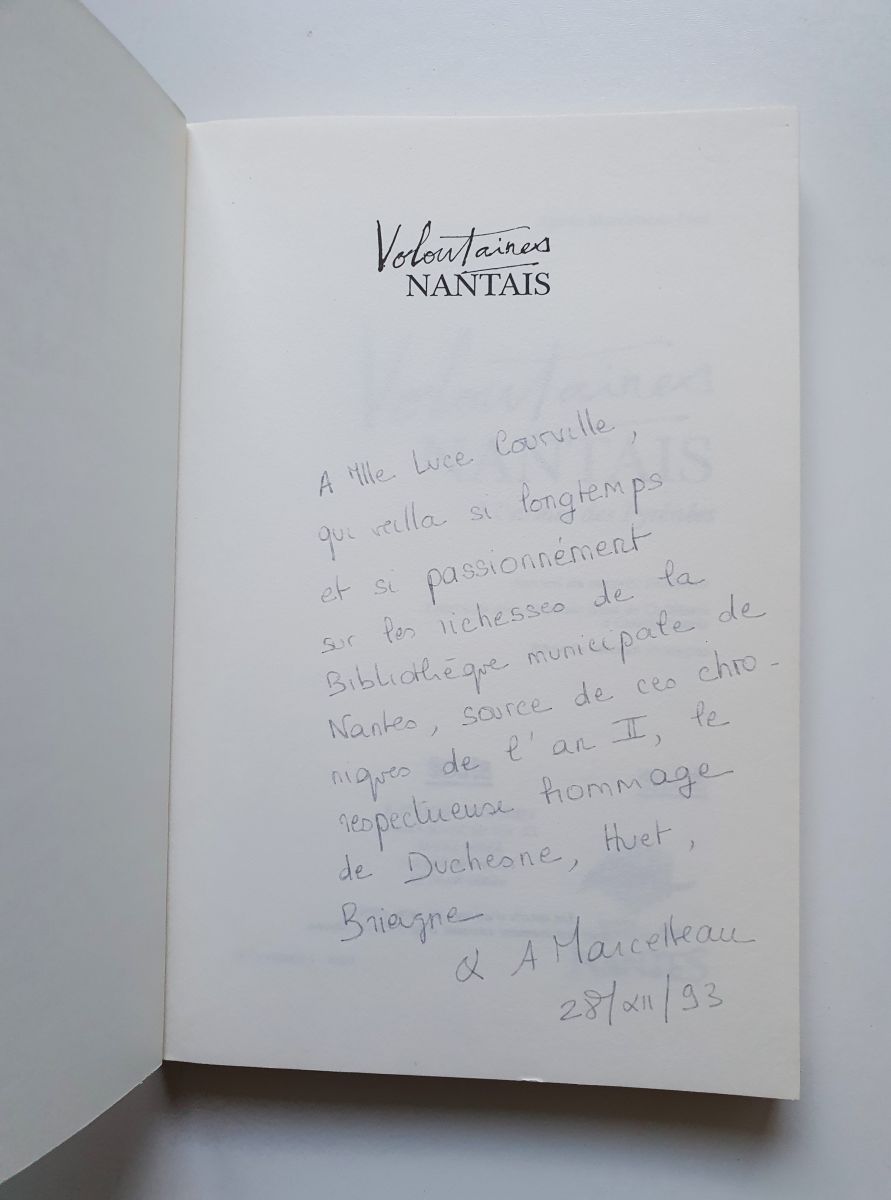 Volontaires
NANTAIS
A Mlle Luce Courville,
qui veilla si longtemps
et si passionnément
sur les richesses de la
Bibliothèque municipale de
Nantes, source de ces chro-
niques de l'an II, le
respectueuse hommage
de Duchesne, Huet,
Briagne
& A Marcetteau
28/XII/93